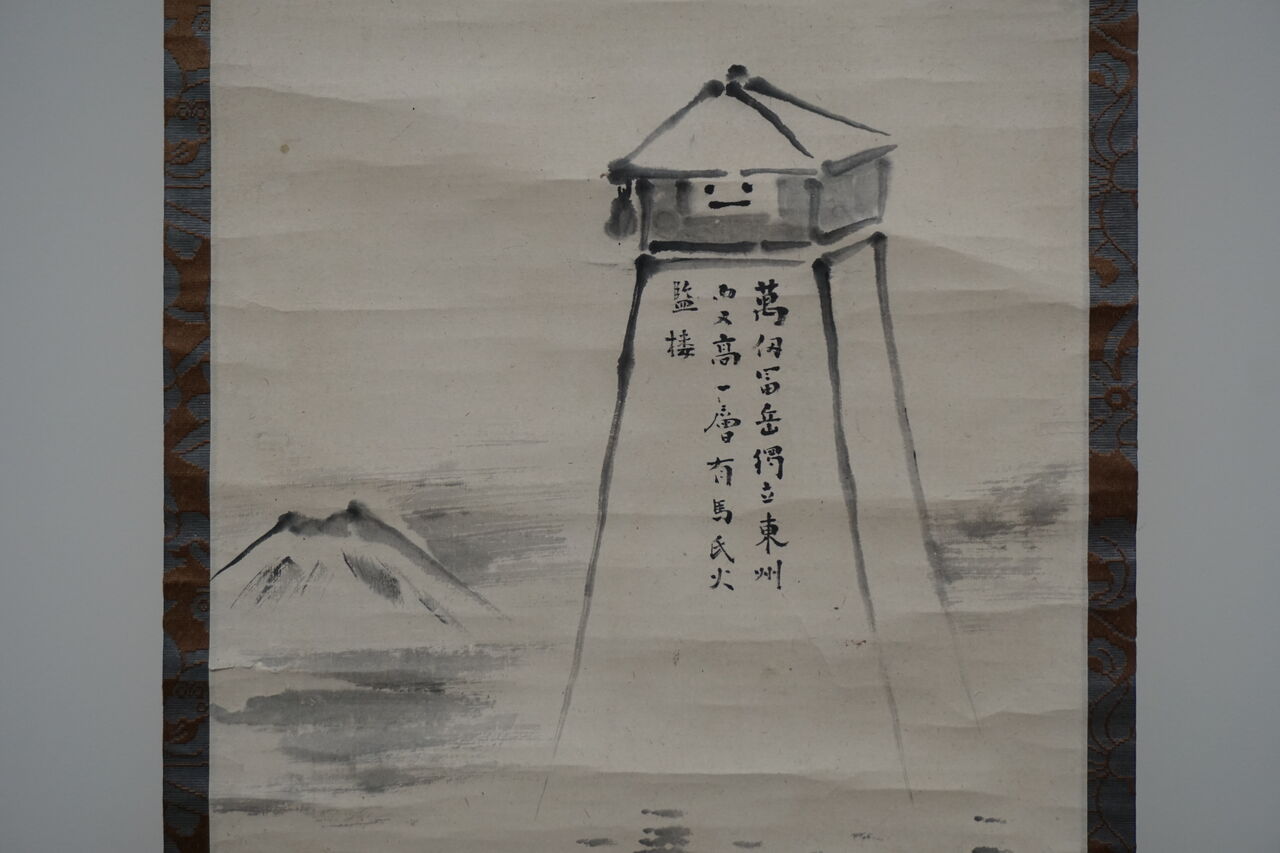 萬仞冨岳獨立東州
尚又高一層有馬氏火
監楼